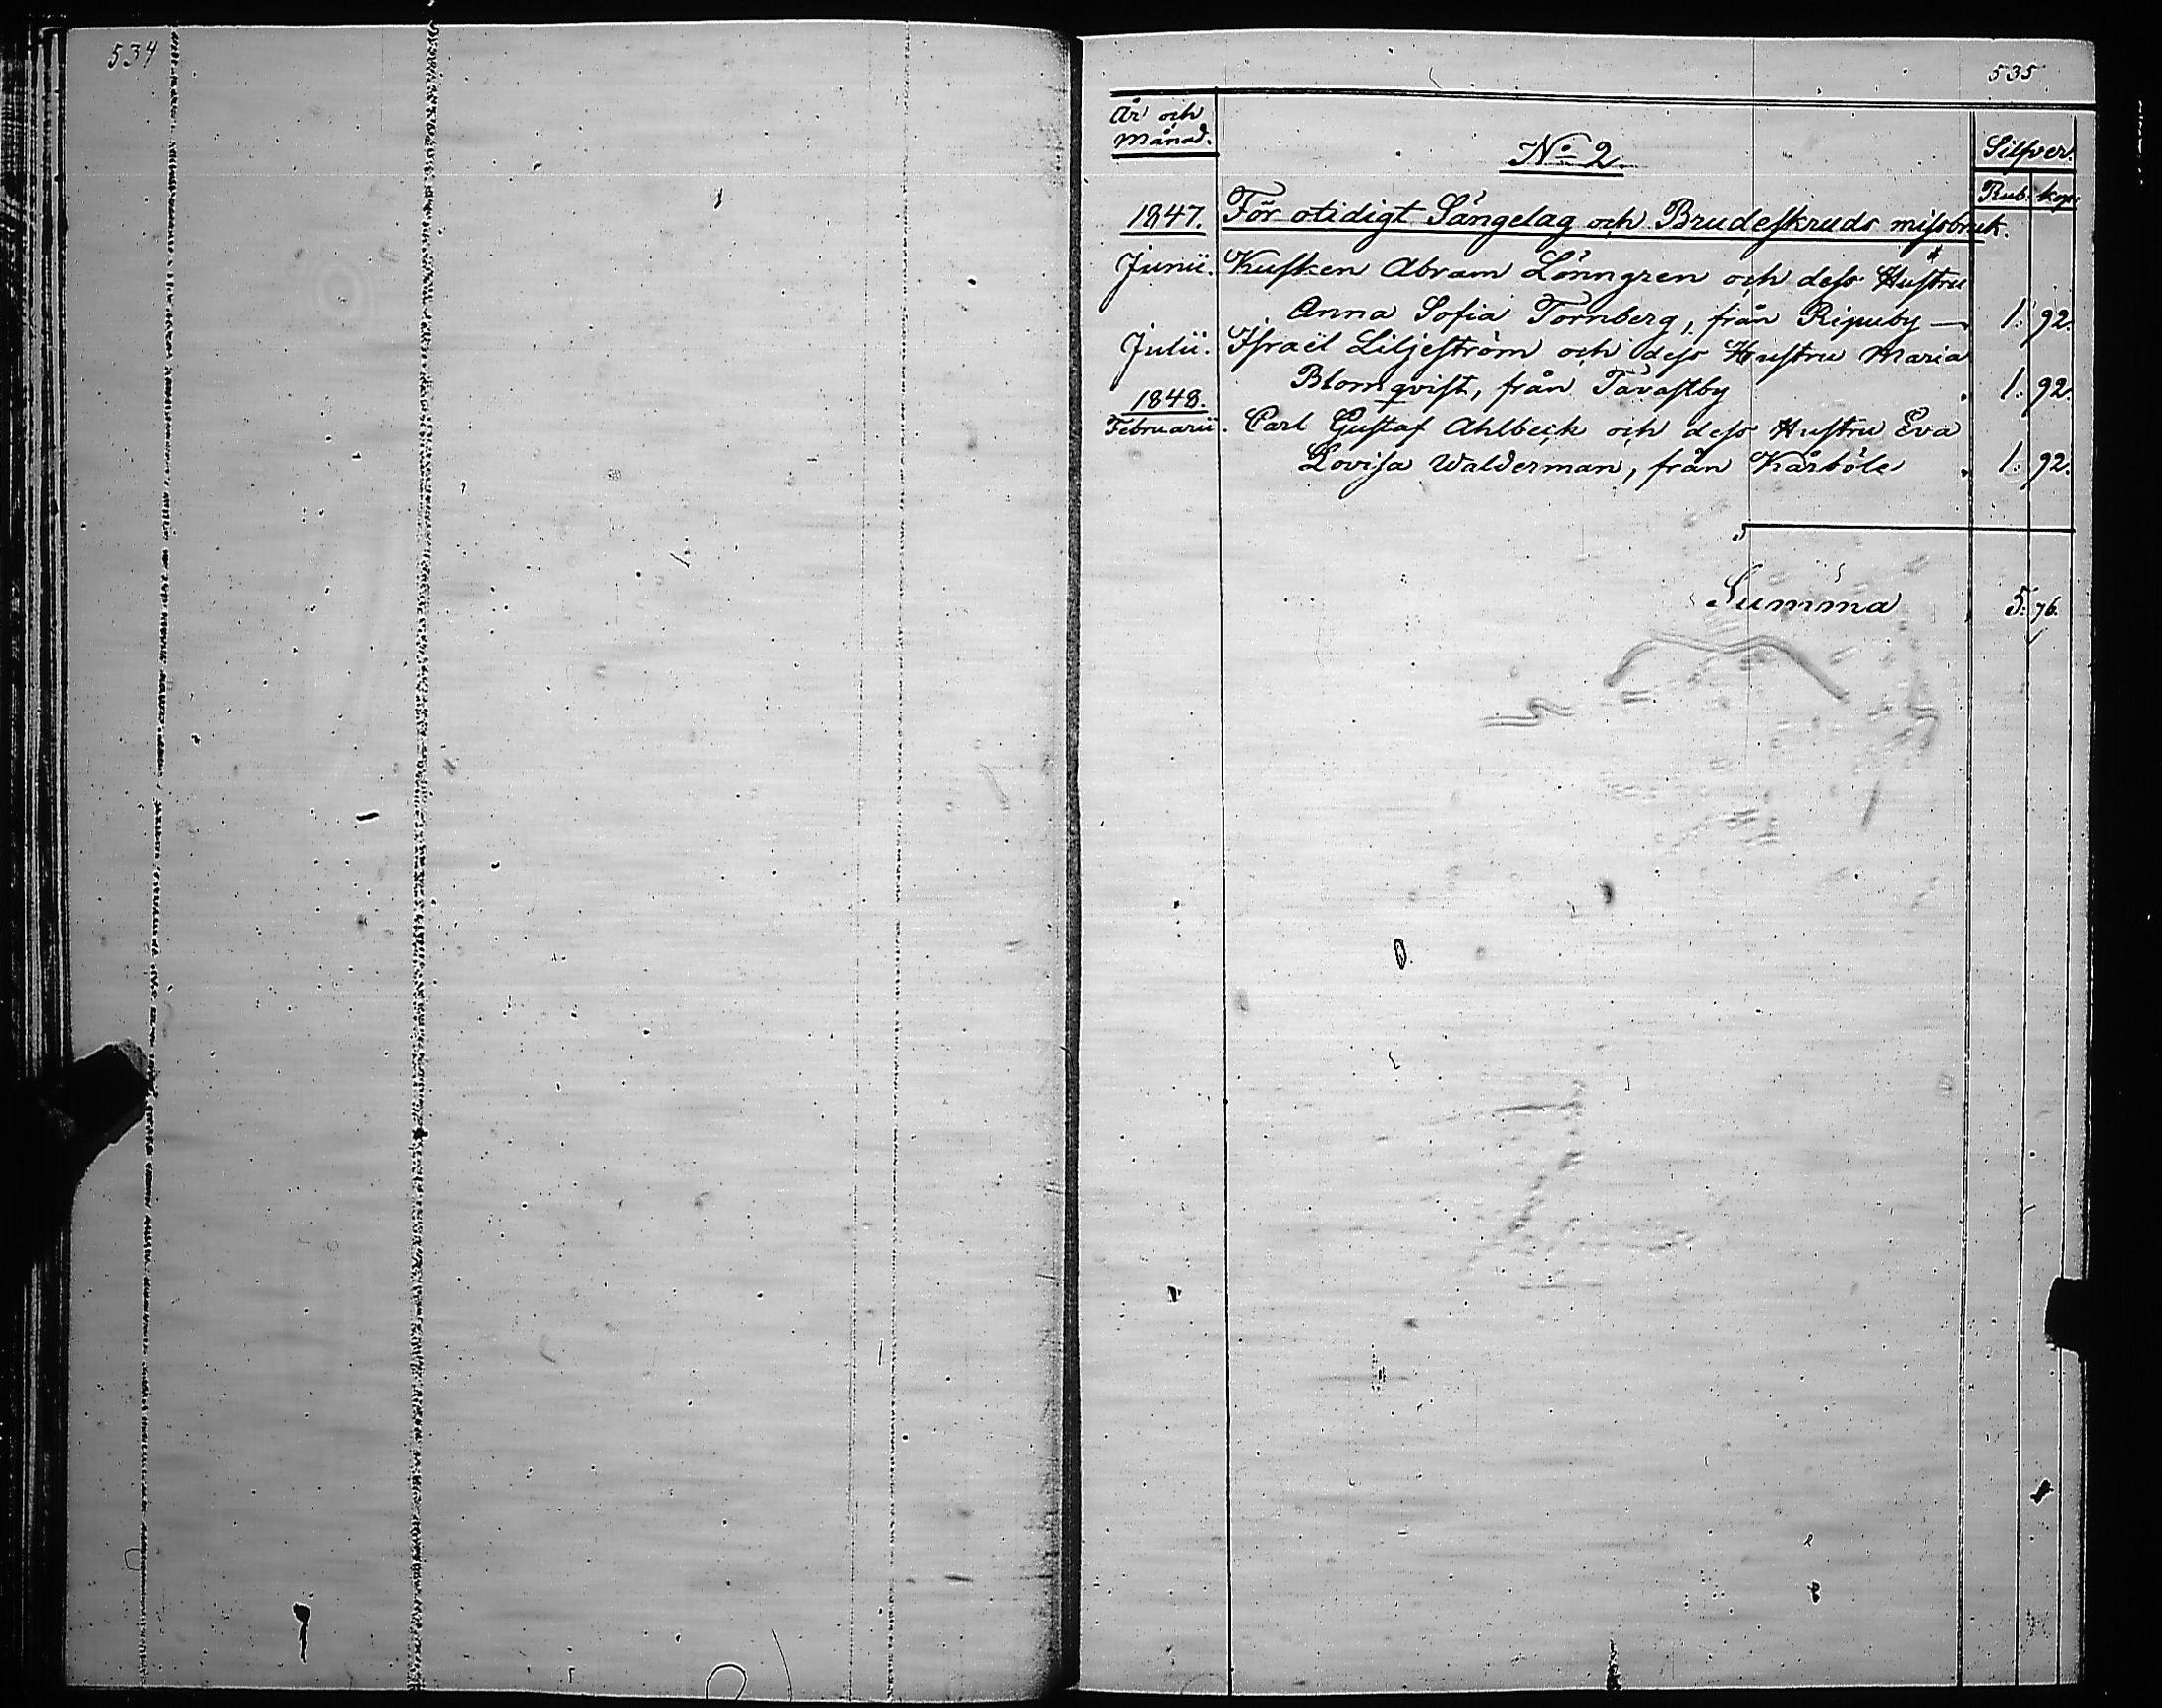 534
535
År och
Månad.
No 2.
Silfver.
Rub. kop.
1847. För otidigt Sängelag och Brudeskruds missbruk.
Junii. Kusken Abram Lönngren och dess Hustru
Anna Sofia Tornberg, från Ripuby — 1. 92.
Julii. Israël Liljeström och dess Hustru Maria
Blomqvist, från Tavastby 1. 92.
1848.
Februarii. Carl Gustaf Ahlbeck och dess Hustru Eva
Lovisa Walderman, från Kårböle 1. 92.
Summa 5. 76.